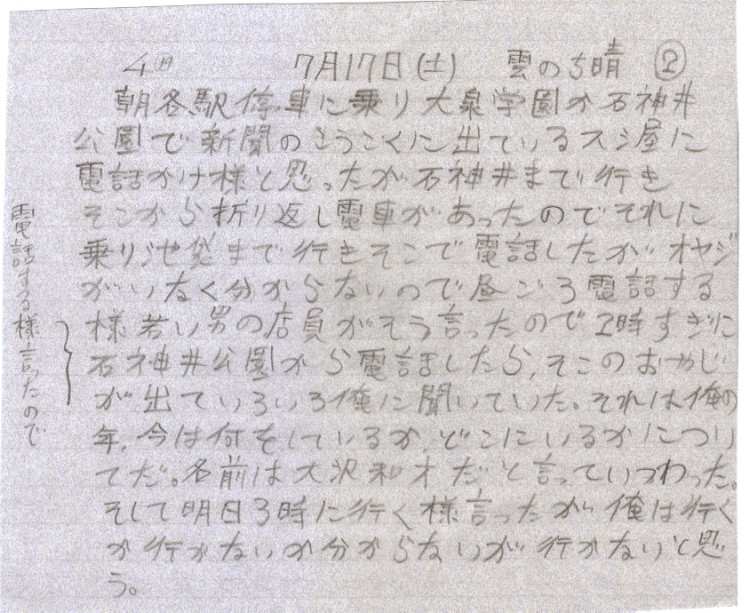 4日 7月17日(土) 雲のち晴 ②
朝各駅停車に乗り大泉学園か石神井
公園で新聞のこうこくに出ているスシ屋に
電話かけ様と思ったが石神井まで行き
そこから折り返し電車があったのでそれに
乗り池袋まで行きそこで電話したがオヤジ
がいなく分からないので昼ごろ電話する
様若い男の店員がそう言ったので2時すぎに
石神井公園から電話したら,そこのおやじ
が出ていろいろ俺に聞いていた。それは俺の
年,今は何をしているか,どこにいるかにつり
てだ。名前は大沢和才だと言っていつわった。
そして明日3時に行く様言ったが俺は行く
か行かないか分からないが行かないと思
う。
電話する様言ったので